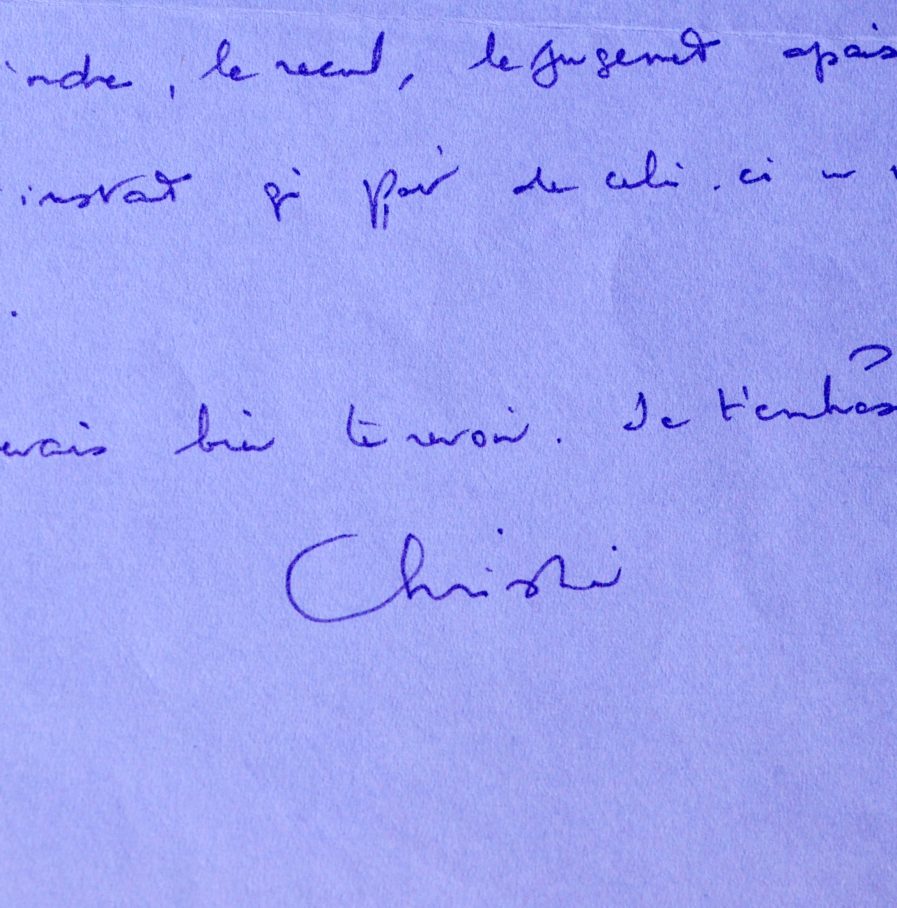 indre, le recul, le jugement apais
instant qui fait de celui-ci un
.
erais bien te revoir. Je t'embras
Christian